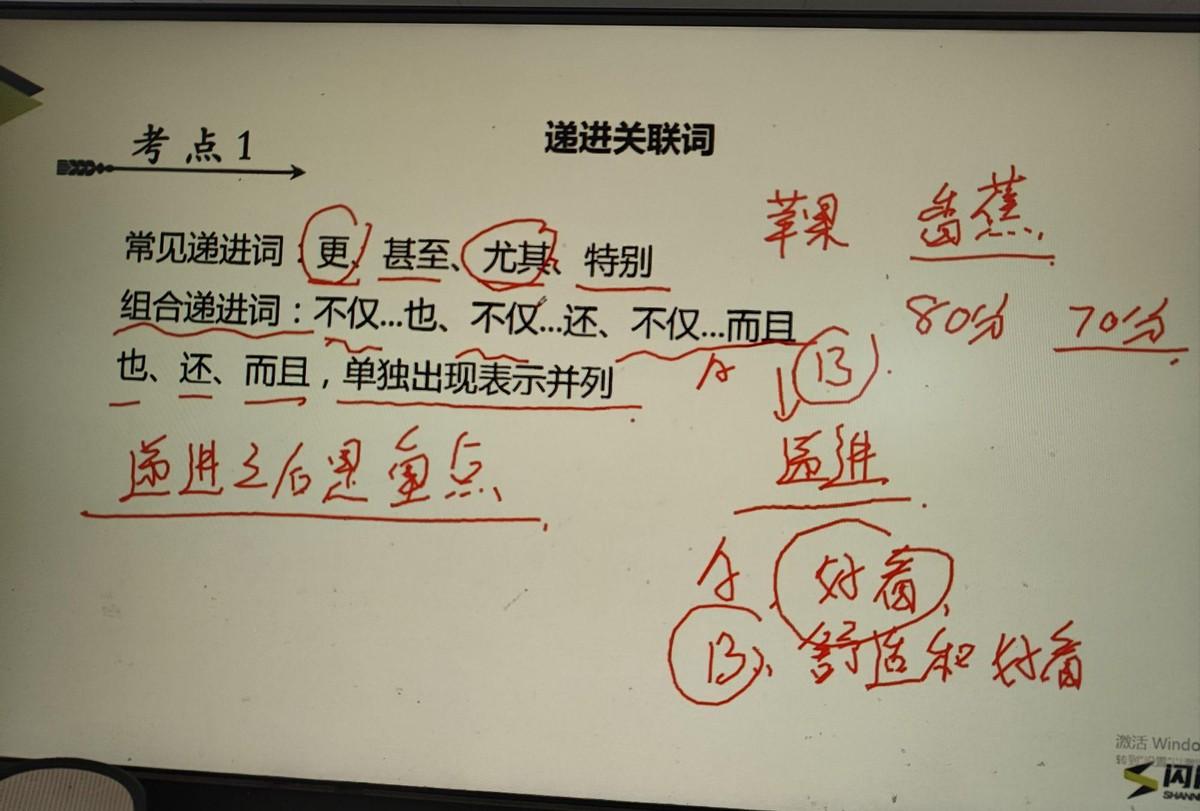 考点1
递进关联词
常见递进词：更、甚至、尤其、特别
苹果 香蕉
组合递进词：不仅...也、不仅...还、不仅...而且
80分 70分
也、还、而且，单独出现表示并列
A B
递进之后是重点
递进
A、好看、
B、舒适和好看
激活 Windo
闪
SHANN